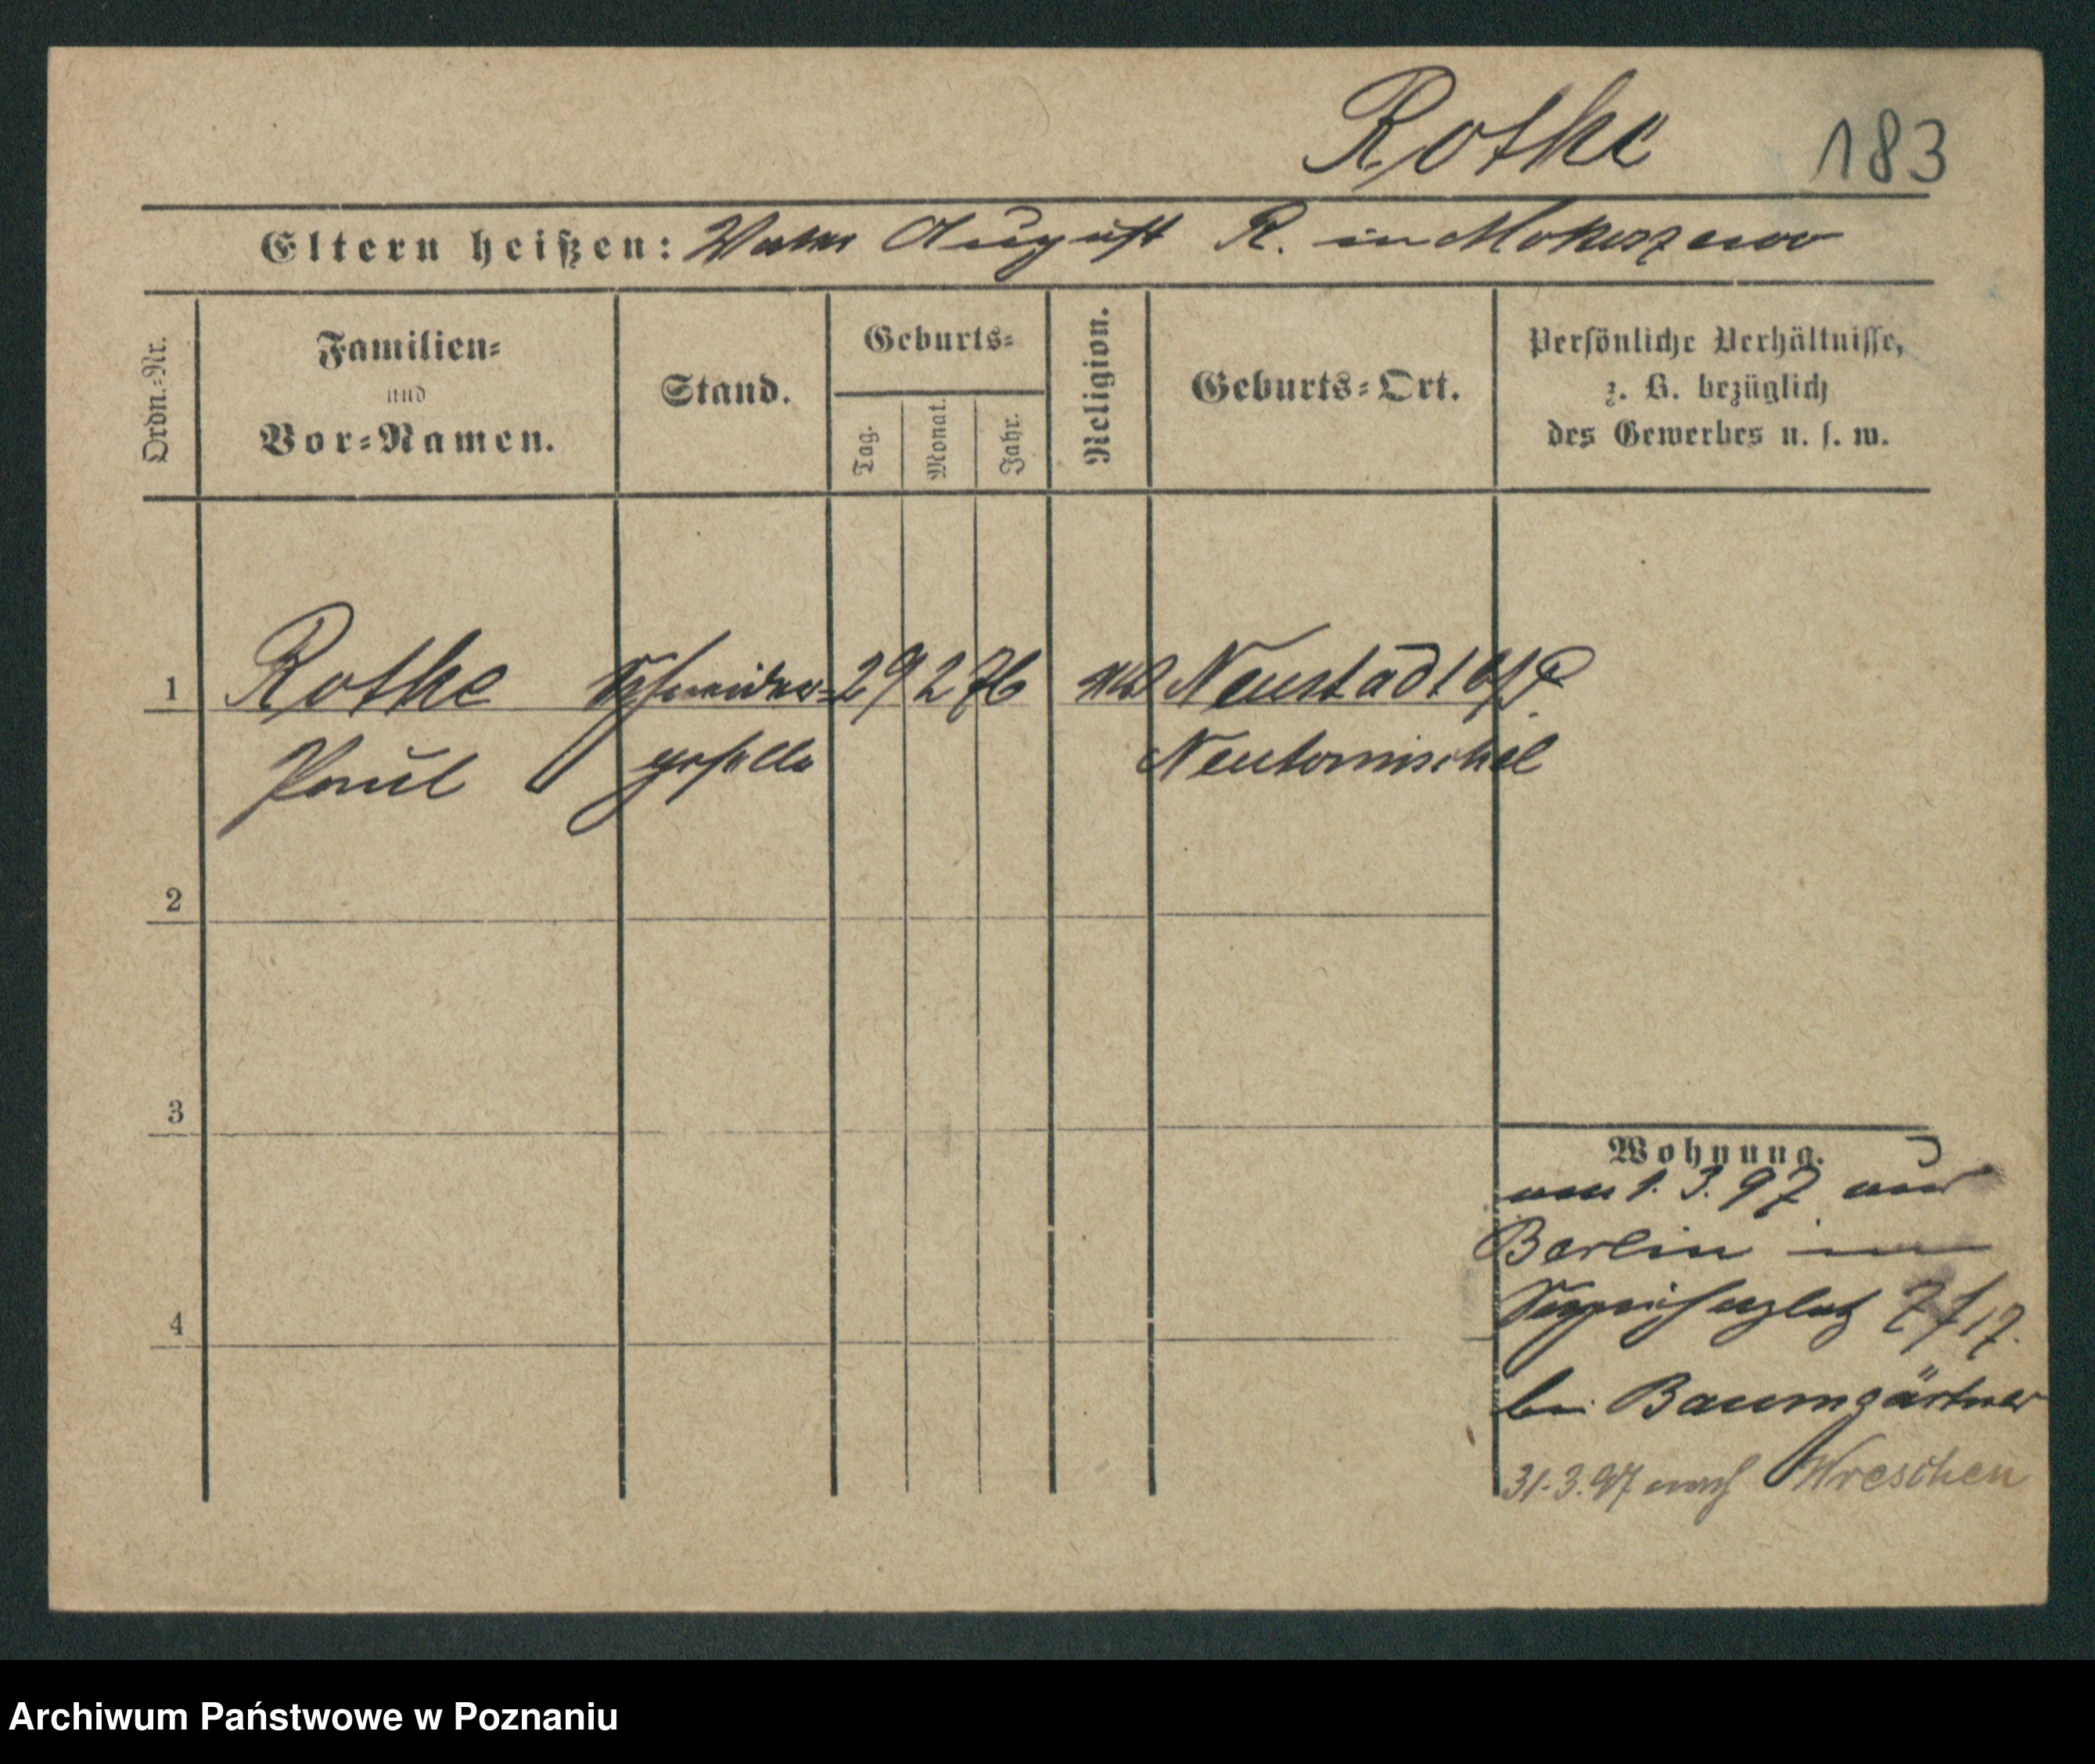 Rothe 183
Eltern heißen: Vater August R. in Mokuszewo
Ordn.-Nr.
Familien-
und
Vor-Namen.
Stand.
Geburts-
Tag.
Monat.
Jahr.
Religion.
Geburts-Ort.
Persönliche Verhältnisse,
z. B. bezüglich
des Gewerbes u. s. w.
1 Rothe Schneider- 29 2 76 Neustadt b/P
Paul geselle Neutomischel
2
3
4
Wohnung.
1. 3. 97 aus
Berlin
bei Baumgärtner
31.3.97 nach Wreschen
Archiwum Państwowe w Poznaniu